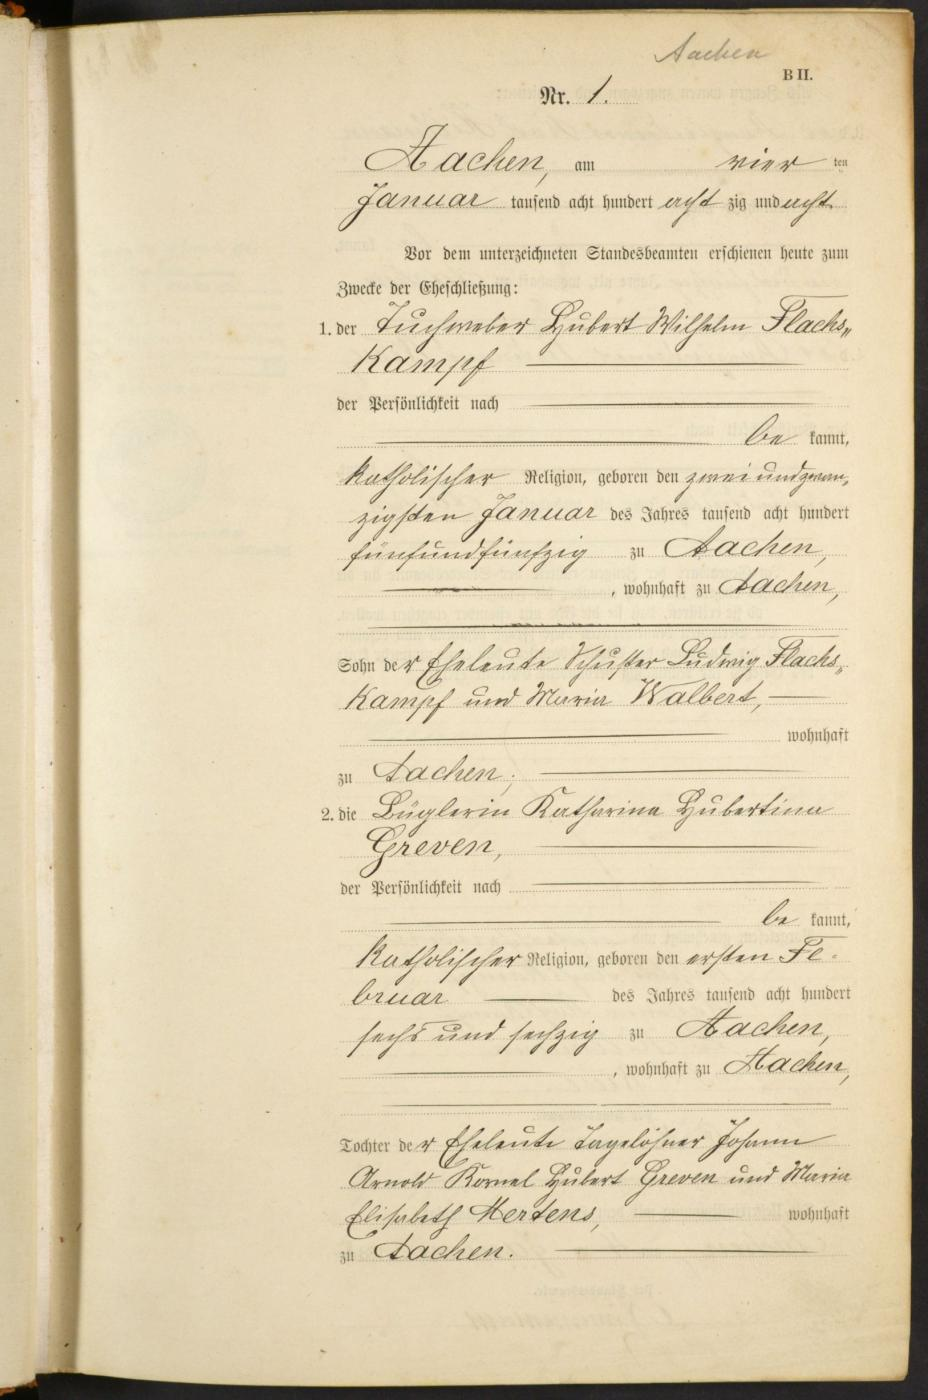 Aachen
B II.
Nr. 1.
Aachen, am vier ten
Januar tausend acht hundert acht zig und acht
Vor dem unterzeichneten Standesbeamten erschienen heute zum
Zwecke der Eheschließung:
1. der Tuchweber Hubert Wilhelm Flachs„
Kampf
der Persönlichkeit nach
be kannt,
katholischer Religion, geboren den zwei und zwan„
zigsten Januar des Jahres tausend acht hundert
fünfundfünfzig zu Aachen,
, wohnhaft zu Aachen,
Sohn der Eheleute Schuster Ludwig Flachs„
Kampf und Maria Walbert,
wohnhaft
zu Aachen;
2. die Büglerin Katharina Hubertina
Greven,
der Persönlichkeit nach
be kannt,
katholischer Religion, geboren den ersten Fe-
bruar des Jahres tausend acht hundert
sechs und sechzig zu Aachen,
, wohnhaft zu Aachen,
Tochter der Eheleute Tagelöhner Johann
Arnold Kornel Hubert Greven und Maria
Elisabeth Mertens, wohnhaft
zu Aachen.